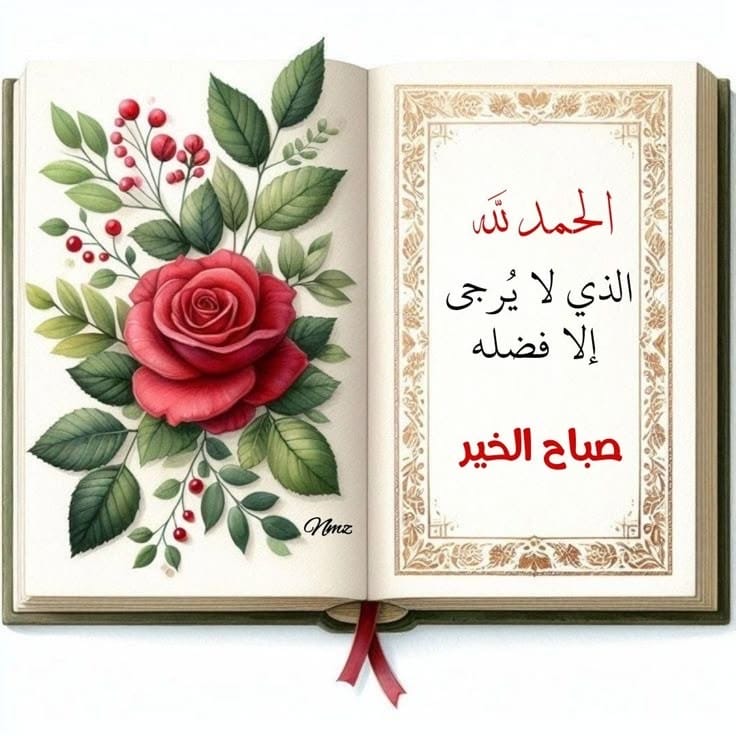 الحمد لله
الذي لا يُرجى
إلا فضله
صباح الخير
Nmz